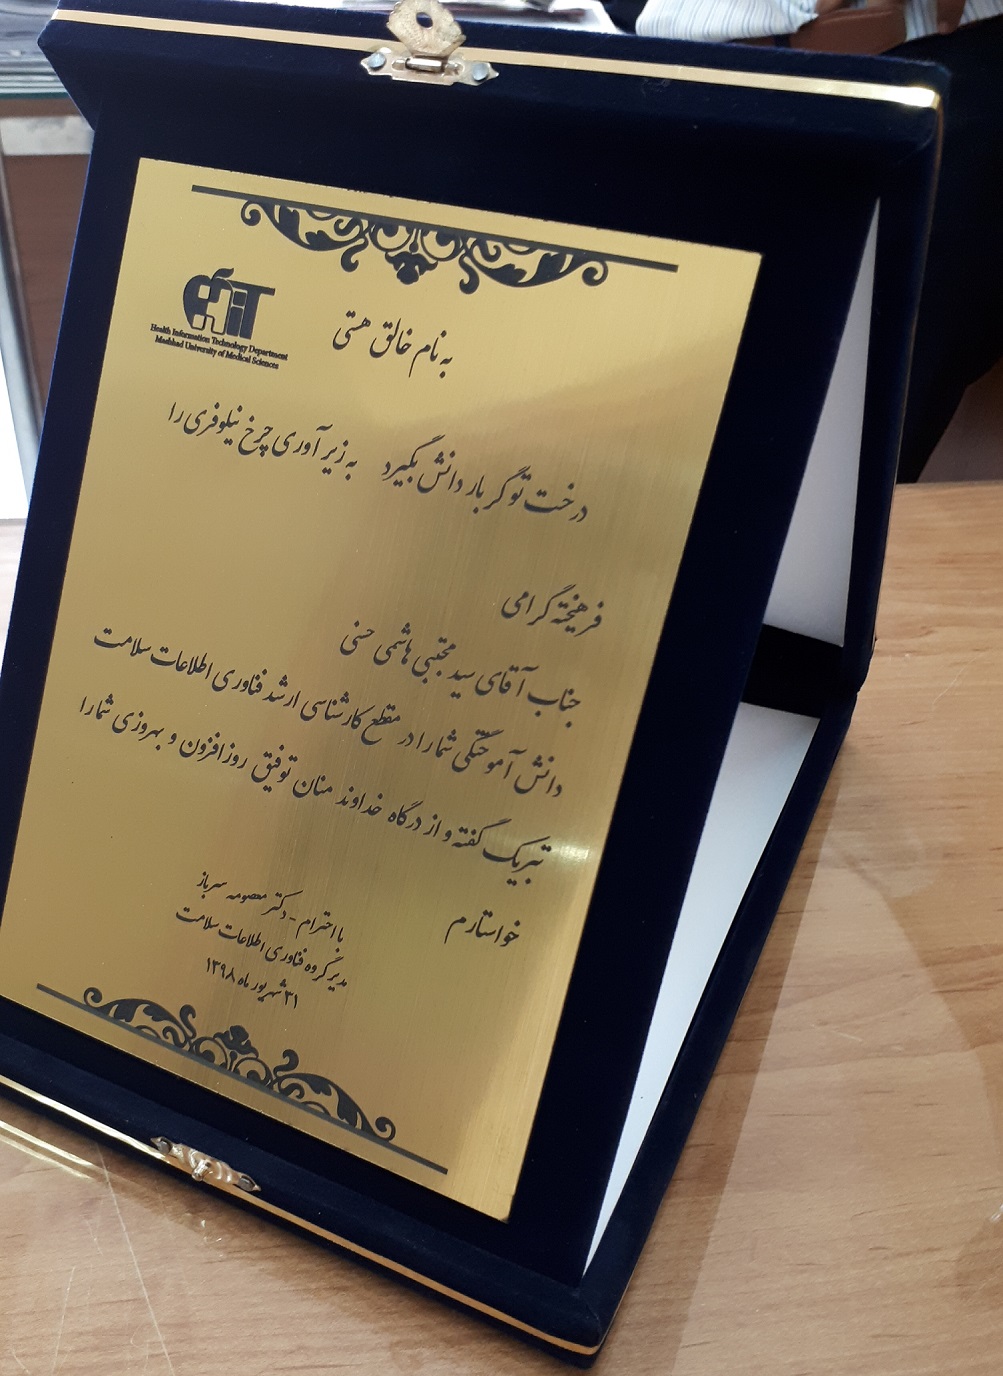 HIT
Health Information Technology Department
Mashhad University of Medical Sciences
به نام خالق هستی
درخت تو گر بار دانش بگیرد به زیر آوری چرخ نیلوفری را
فرهیخته گرامی
جناب آقای سید مجتبی هاشمی حسنی
دانش آموختگی شما را در مقطع کارشناسی ارشد فناوری اطلاعات سلامت
تبریک گفته و از درگاه خداوند منان توفیق روز افزون و بهروزی شما را
خواستارم
با احترام - دکتر معصومه سرباز
مدیر گروه فناوری اطلاعات سلامت
۳۱ شهریور ماه ۱۳۹۸